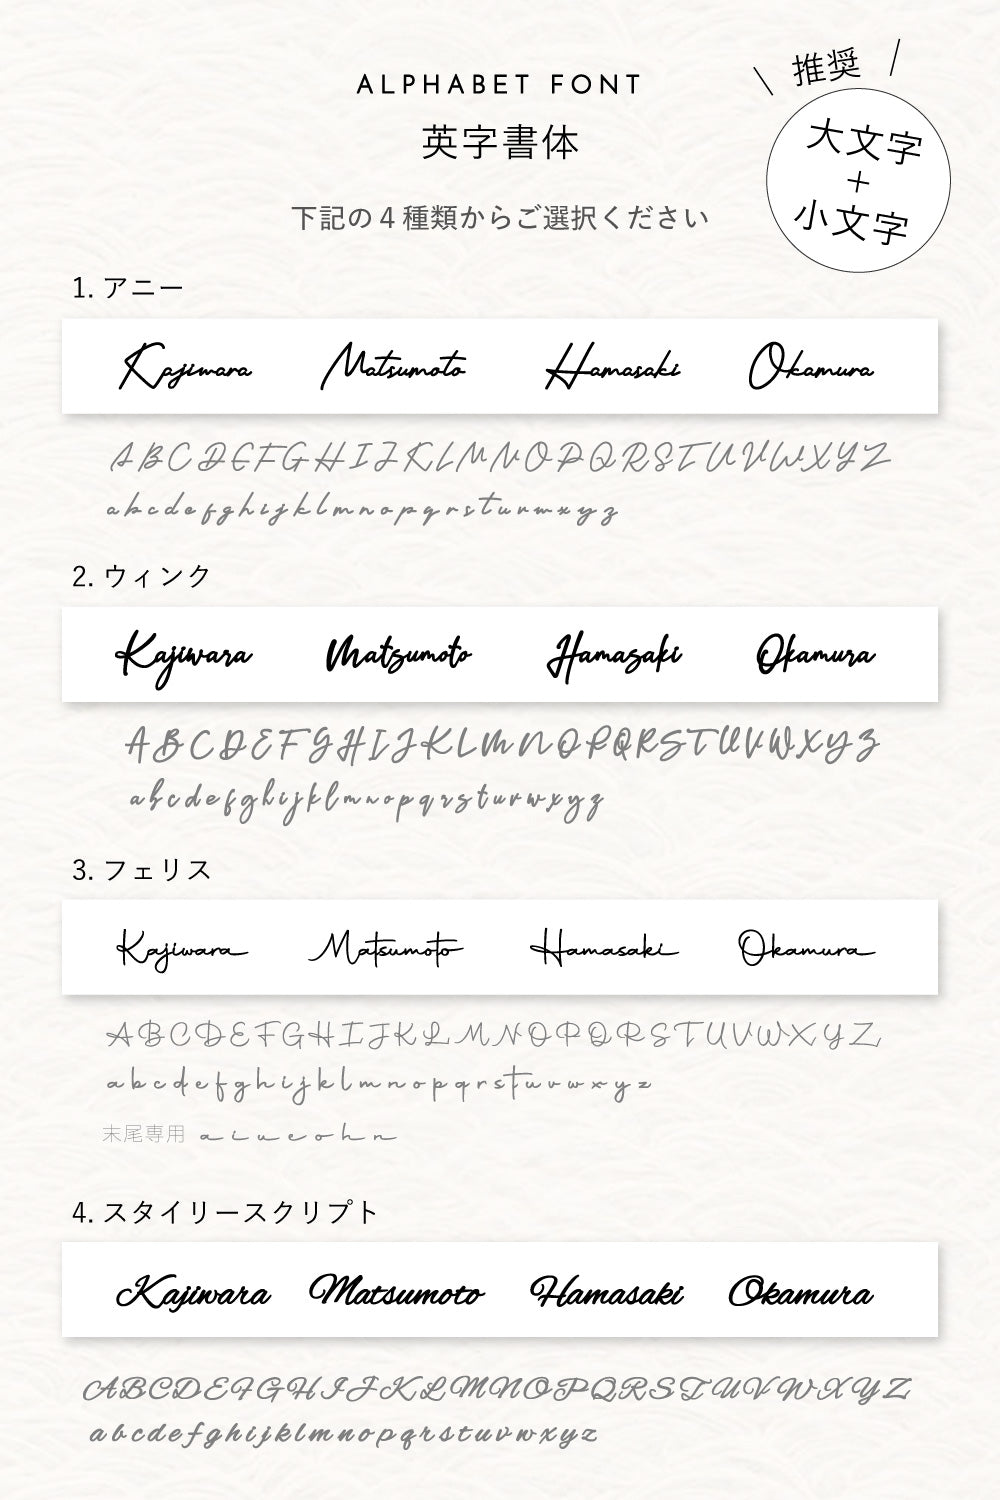 ALPHABET FONT
英字書体
下記の4種類からご選択ください
推奨
大文字
+
小文字
1. アニー
Kajiwara Matsumoto Hamasaki Okamura
ABCDEFGHIJKLMNOPQRSTUVWXYZ
abcdefghijklmnopqrstuvwxyz
2. ウィンク
Kajiwara Matsumoto Hamasaki Okamura
ABCDEFGHIJKLMNOPQRSTUVWXYZ
abcdefghijklmnopqrstuvwxyz
3. フェリス
Kajiwara Matsumoto Hamasaki Okamura
ABCDEFGHIJKLMNOPQRSTUVWXYZ
abcdefghijklmnopqrstuvwxyz
末尾専用 aiueohn
4. スタイリースクリプト
Kajiwara Matsumoto Hamasaki Okamura
ABCDEFGHIJKLMNOPQRSTUVWXYZ
abcdefghijklmnopqrstuvwxyz